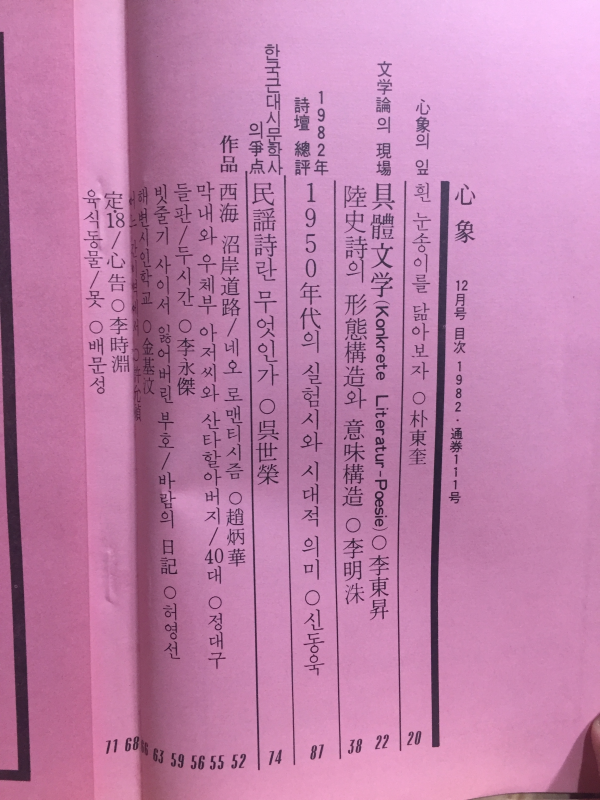 心象 12月号 目次 1982·通券111号
心象의 잎 흰 눈송이를 닮아보자 ○ 朴東奎 20
文学論의 現場 具體文学(Konkrete Literatur-Poesie) ○ 李東昇 22
陸史詩의 形態構造와 意味構造 ○ 李明洙 38
1982年 詩壇 總評 1950年代의 실험시와 시대적 의미 ○ 신동욱 87
한국근대시문학사의 爭点 民謡詩란 무엇인가 ○ 呉世榮 74
作品 西海 沼岸道路/네오 로맨티시즘 ○ 趙炳華 52
막내와 우체부 아저씨와 산타할아버지/40대 ○ 정대구 55
들판/두시간 ○ 李永傑 56
빗줄기 사이서 잃어버린 부호/바람의 日記 ○ 허영선 59
해변시인학교 ○ 金基汶 63
定18/心告 ○ 李時淵 68
육식동물/못 ○ 배문성 71